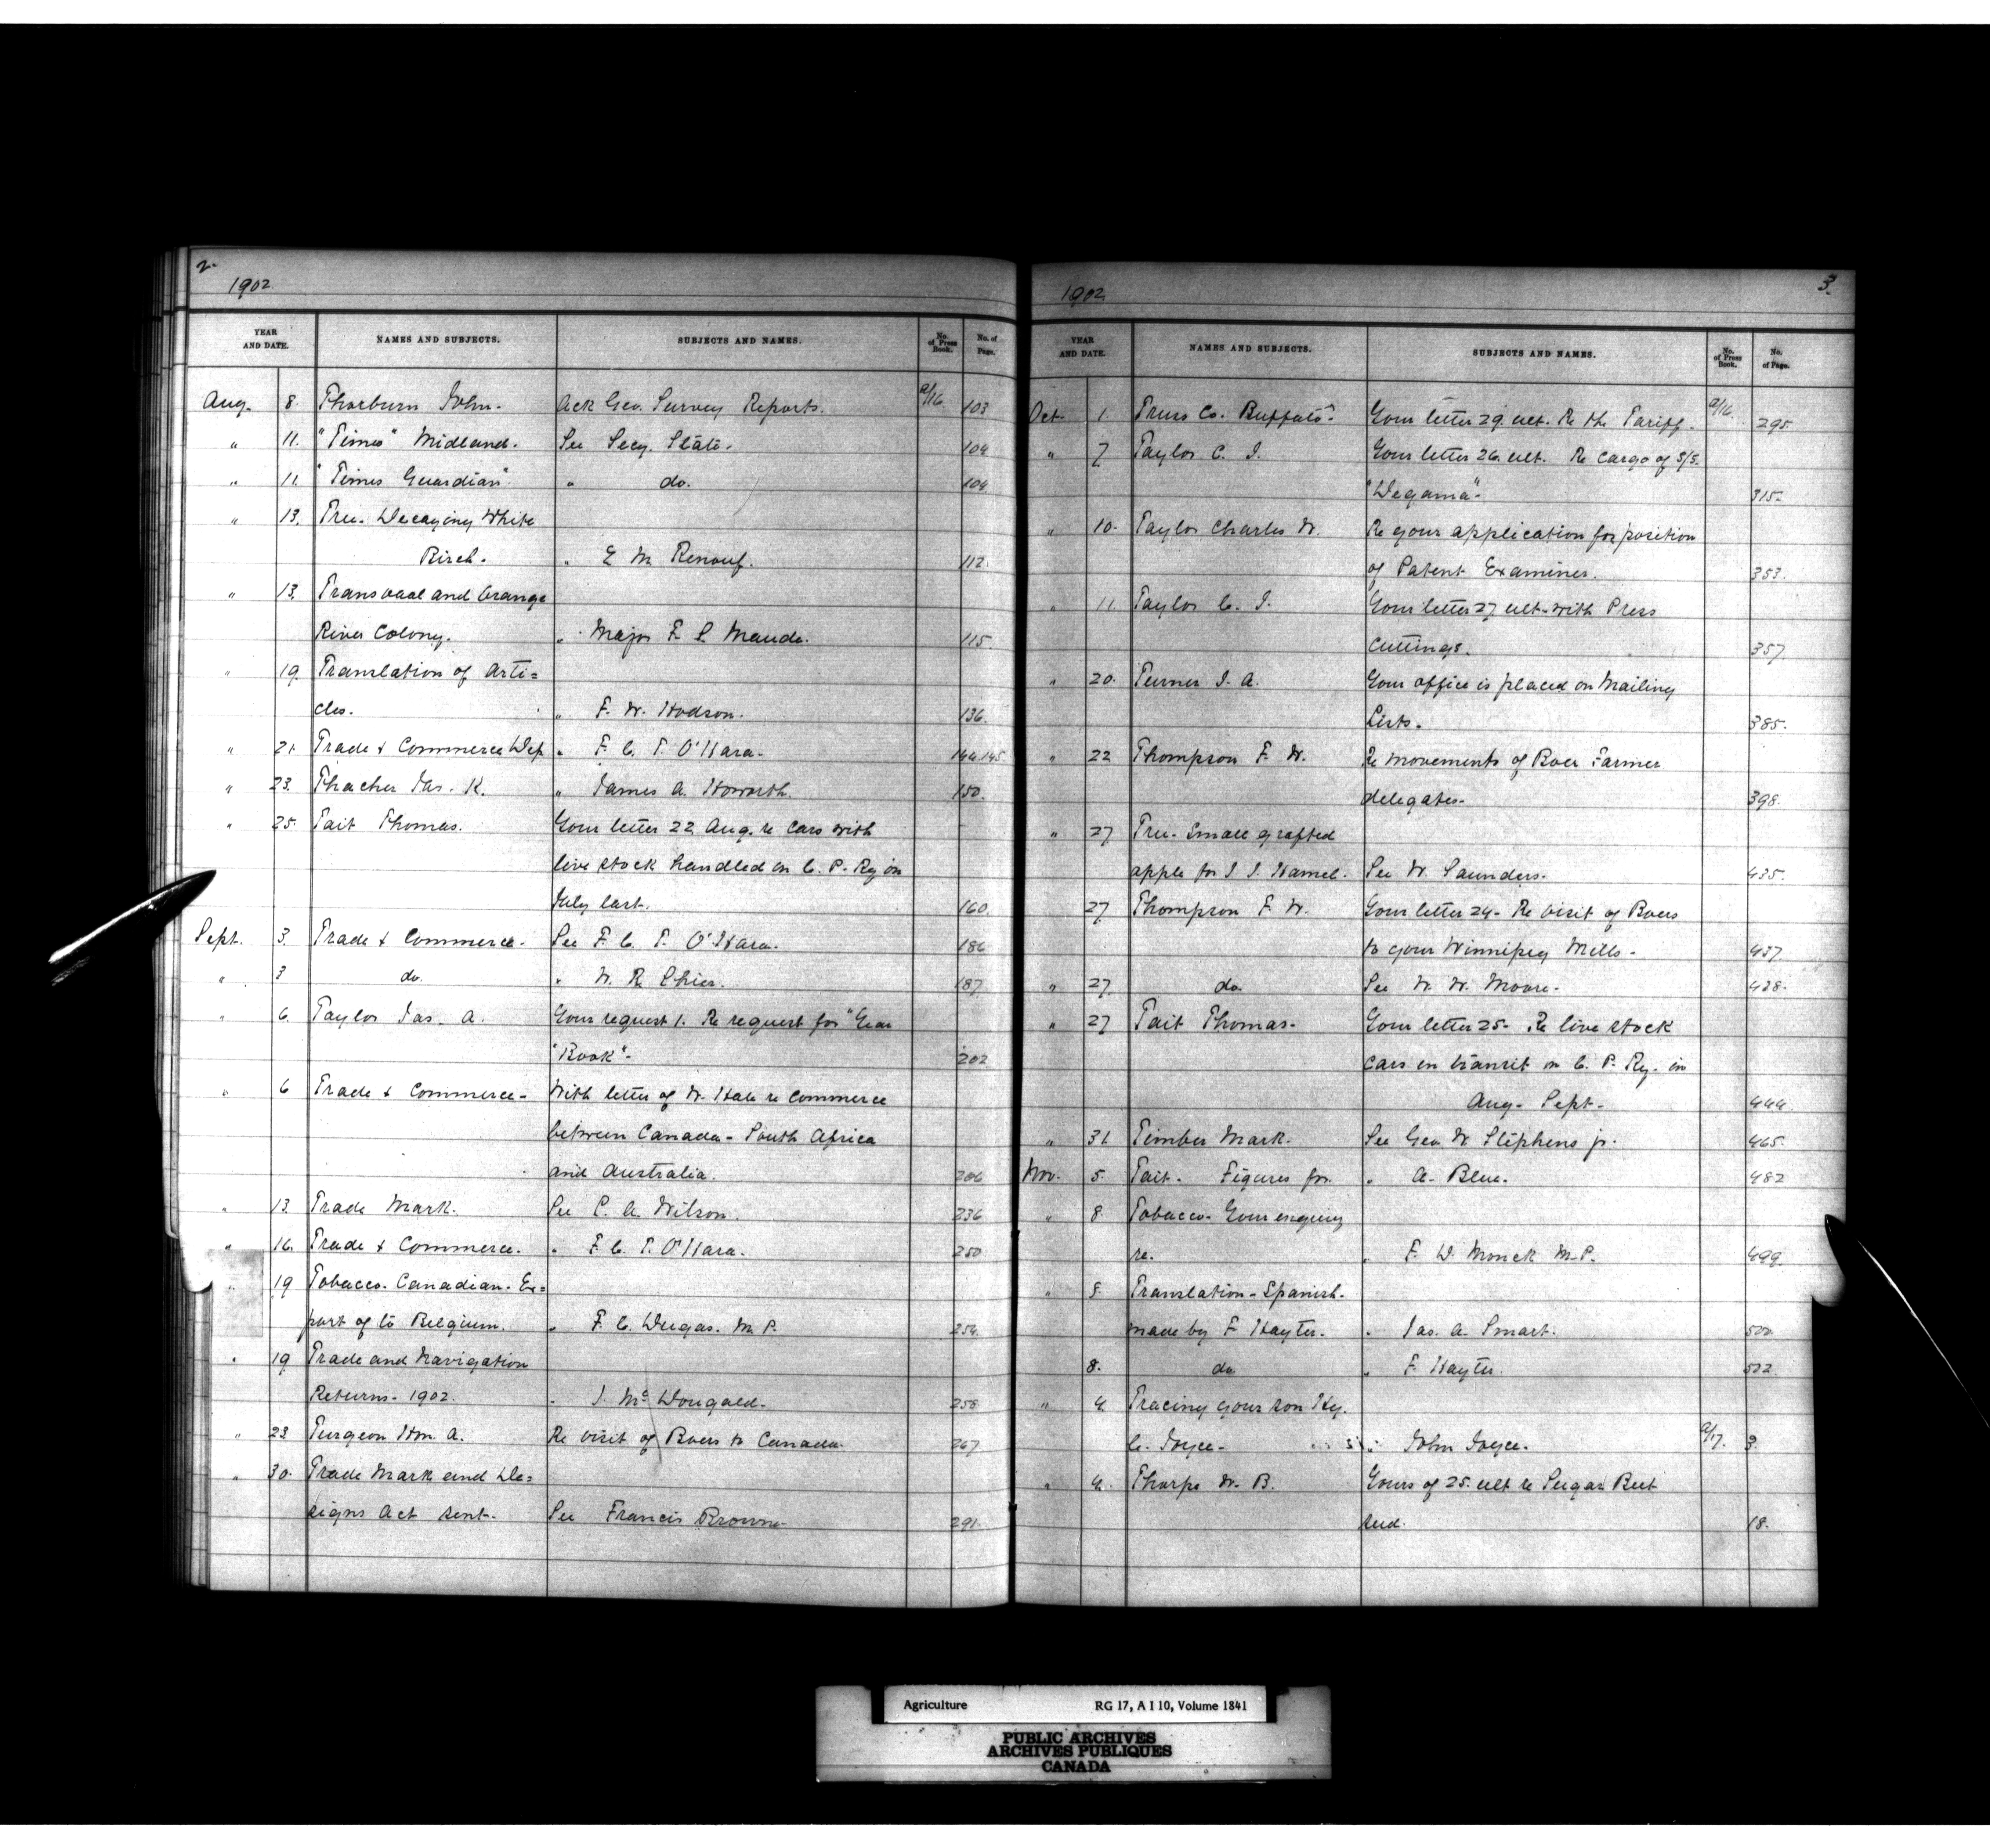 2.
1902.
YEAR AND DATE. NAMES AND SUBJECTS. SUBJECTS AND NAMES. No. of Press Book. No. of Page.
Aug. 8. Thorburn John. Ack Geo. Survey Reports. 9/16 103
" 11. "Times" Midland. See Secy. State. 104
" 11. "Times Guardian" " do. 104
" 13. Tree. Decaying White
Birch. " E. M. Renouf. 112.
" 13. Transvaal and Orange
River Colony. " Major F. S. Maude. 115.
" 19. Translation of Arti=
cles. " F. W. Hodson. 136.
" 21. Trade & Commerce Dep " F. C. T. O'Hara. 144.145
" 23. Thacher Jas. K. " James A. Howorth. 150.
" 25. Tait Thomas. Your letter 22 Aug. re Cars with
live stock handled on C. P. Ry in
July last. 160.
Sept. 3. Trade & Commerce. See F. C. T. O'Hara. 186
" 3 do. " W. R. Shier. 187
" 6. Taylor Jas. A. Your request 1. Re request for "Year
"Book". 202
" 6 Trade & Commerce. With letter of W. Hale re Commerce
between Canada - South Africa
and Australia. 206
" 13. Trade Mark. See C. A. Wilson. 236
" 16. Trade & Commerce. " F. C. T. O'Hara. 250
" 19 Tobacco. Canadian. Ex=
port of to Belgium. " F. C. Dugas. M. P. 254.
" 19 Trade and Navigation
Returns. 1902. " J. McDougald. 258.
" 23 Turgeon Hon. A. Re visit of Boers to Canada. 267
" 30. Trade Mark and De=
signs Act sent. See Francis Browne. 291.
3.
1902.
YEAR AND DATE. NAMES AND SUBJECTS. SUBJECTS AND NAMES. No. of Press Book. No. of Page.
Oct. 1. Truss Co. Buffalo. Your letter 29. ult. Re the Tariff. 9/16. 295.
" 7. Taylor C. J. Your letter 26. ult. Re Cargo of S/S.
"Degama". 315.
" 10. Taylor Charles W. Re your application for position
of Patent Examiner. 353.
" 11. Taylor C. J. Your letter 27 ult. with Press
Cuttings. 357.
" 20. Turner J. A. Your office is placed on Mailing
Lists. 385.
" 22 Thompson F. W. Re movements of Boer Farmer
delegates. 398.
" 27 Tree. Small grafted
apple for J. J. Hamel. See W. Saunders. 435.
27 Thompson F. W. Your letter 24. Re visit of Boers
to your Winnipeg Mills. 437
" 27 do. See W. W. Moore. 438.
" 27 Tait Thomas. Your letter 25. Re live stock
cars in transit on C. P. Ry. in
Aug. Sept. 444.
" 31. Timber Mark. See Geo. W. Stephens jr. 465.
Nov. 5. Tait. Figures for. " A. Blue. 482
" 8 Tobacco. Your enquiry
re. " F. D. Monck M.P. 499.
" 8. Translation - Spanish.
made by F. Hayter. " Jas. A. Smart. 500.
8. do. " F. Hayter. 502.
" 4. Tracing your son Hy.
C. Joyce. " John Joyce. 9/17. 3.
" 4. Thorpe W. B. Yours of 25. ult re Sugar Beet
seed. 18.
Agriculture RG 17, A I 10, Volume 1841
PUBLIC ARCHIVES
ARCHIVES PUBLIQUES
CANADA